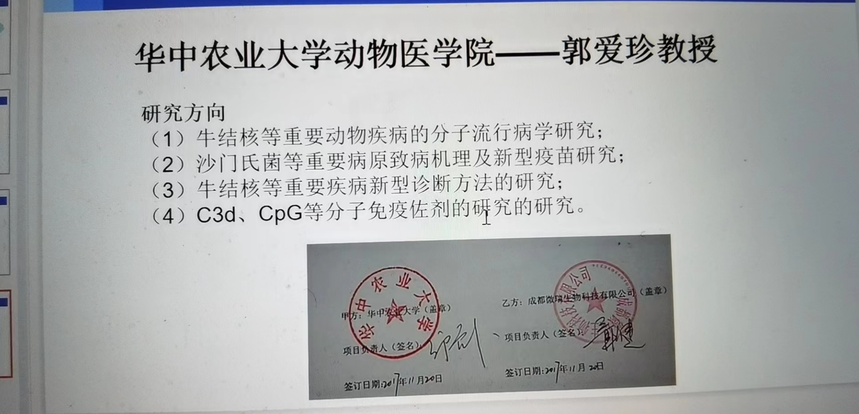 华中农业大学动物医学院——郭爱珍教授
研究方向
（1）牛结核等重要动物疾病的分子流行病学研究；
（2）沙门氏菌等重要病原致病机理及新型疫苗研究；
（3）牛结核等重要疾病新型诊断方法的研究；
（4）C3d、CpG等分子免疫佐剂的研究的研究。
华中农业大学
甲方：华中农业大学（盖章）
项目负责人（签名）
签订日期：2017年11月20日
乙方：成都微瑞生物科技有限公司（盖章）
项目负责人（签名）
签订日期：2017年11月20日